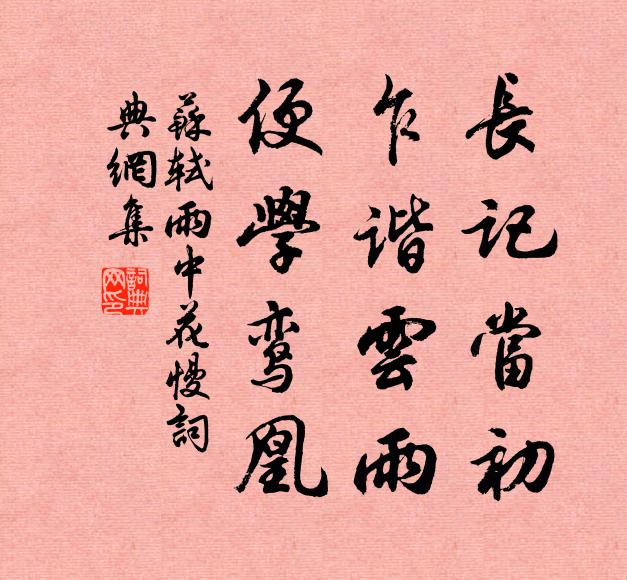 長記當初
乍谐雲雨
便學鸾凰
蘇軾雨中花慢詞
典網集
詞典網印